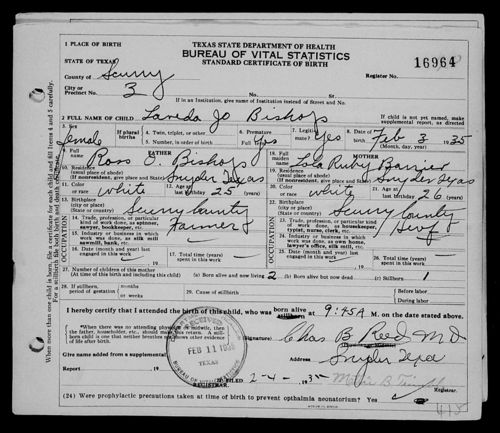 TEXAS STATE DEPARTMENT OF HEALTH
BUREAU OF VITAL STATISTICS
STANDARD CERTIFICATE OF BIRTH
16964
1 PLACE OF BIRTH
STATE OF TEXAS
County of Scurry
Register No.
City or Precinct No. 3
If in an Institution, give Name of Institution instead of Street and No.
2 FULL NAME OF CHILD Laveda Jo Bishop
If child is not yet named, make supplemental report, as directed
3. Sex female
If plural births
4. Twin, triplet, or other
5. Number, in order of birth
6. Premature
Full term Yes
7. Legitimate? Yes
8. Date of birth Feb 3, 1935
(Month, day, year)
9. Full name FATHER Ross Bishop
18. Full maiden name MOTHER Lola Ruby Barrier
10. Residence (usual place of abode)
If nonresident, give place and State Snyder Texas
19. Residence (usual place of abode)
If nonresident, give place and State Snyder Texas
11. Color or race white
12. Age at last birthday 25 (years)
20. Color or race white
21. Age at last birthday 26 (years)
13. Birthplace (city or place) (State or country) Scurry County
22. Birthplace (city or place) (State or country) Scurry County
OCCUPATION
14. Trade, profession, or particular kind of work done, as spinner, sawyer, bookkeeper, etc. Farmer
15. Industry or business in which work was done, as silk mill, sawmill, bank, etc.
16. Date (month and year) last engaged in this work
17. Total time (years) spent in this work
OCCUPATION
23. Trade, profession, or particular kind of work done, as housekeeper, typist, nurse, clerk, etc.
24. Industry or business in which work was done, as own home, lawyer's office, silk mill, etc.
25. Date (month and year) last engaged in this work
26. Total time (years) spent in this work
27. Number of children of this mother
(At time of this birth and including this child)
(a) Born alive and now living 2
(b) Born alive but now dead
(c) Stillborn 1
28. If stillborn, period of gestation months or weeks
29. Cause of stillbirth
Before labor
During labor
I hereby certify that I attended the birth of this child, who was born alive stillborn at 9:45 A M. on the date stated above.
*When there was no attending physician or midwife, then the father, householder, etc., should make this return. A stillborn child is one that neither breathes nor shows other evidence of life after birth.
(Signature) Chas B Reed M D
Address Snyder Texas
Give name added from a supplemental report
19
RECEIVED
FEB 11 1935
TEXAS
BUREAU OF VITAL STATISTICS
REGISTRAR.
FILED 2-4-, 1935
Registrar.
(24) Were prophylactic precautions taken at time of birth to prevent opthalmia neonatorium?
When more than one child is born, file a certificate for each child and fill Items 4 and 5 carefully.